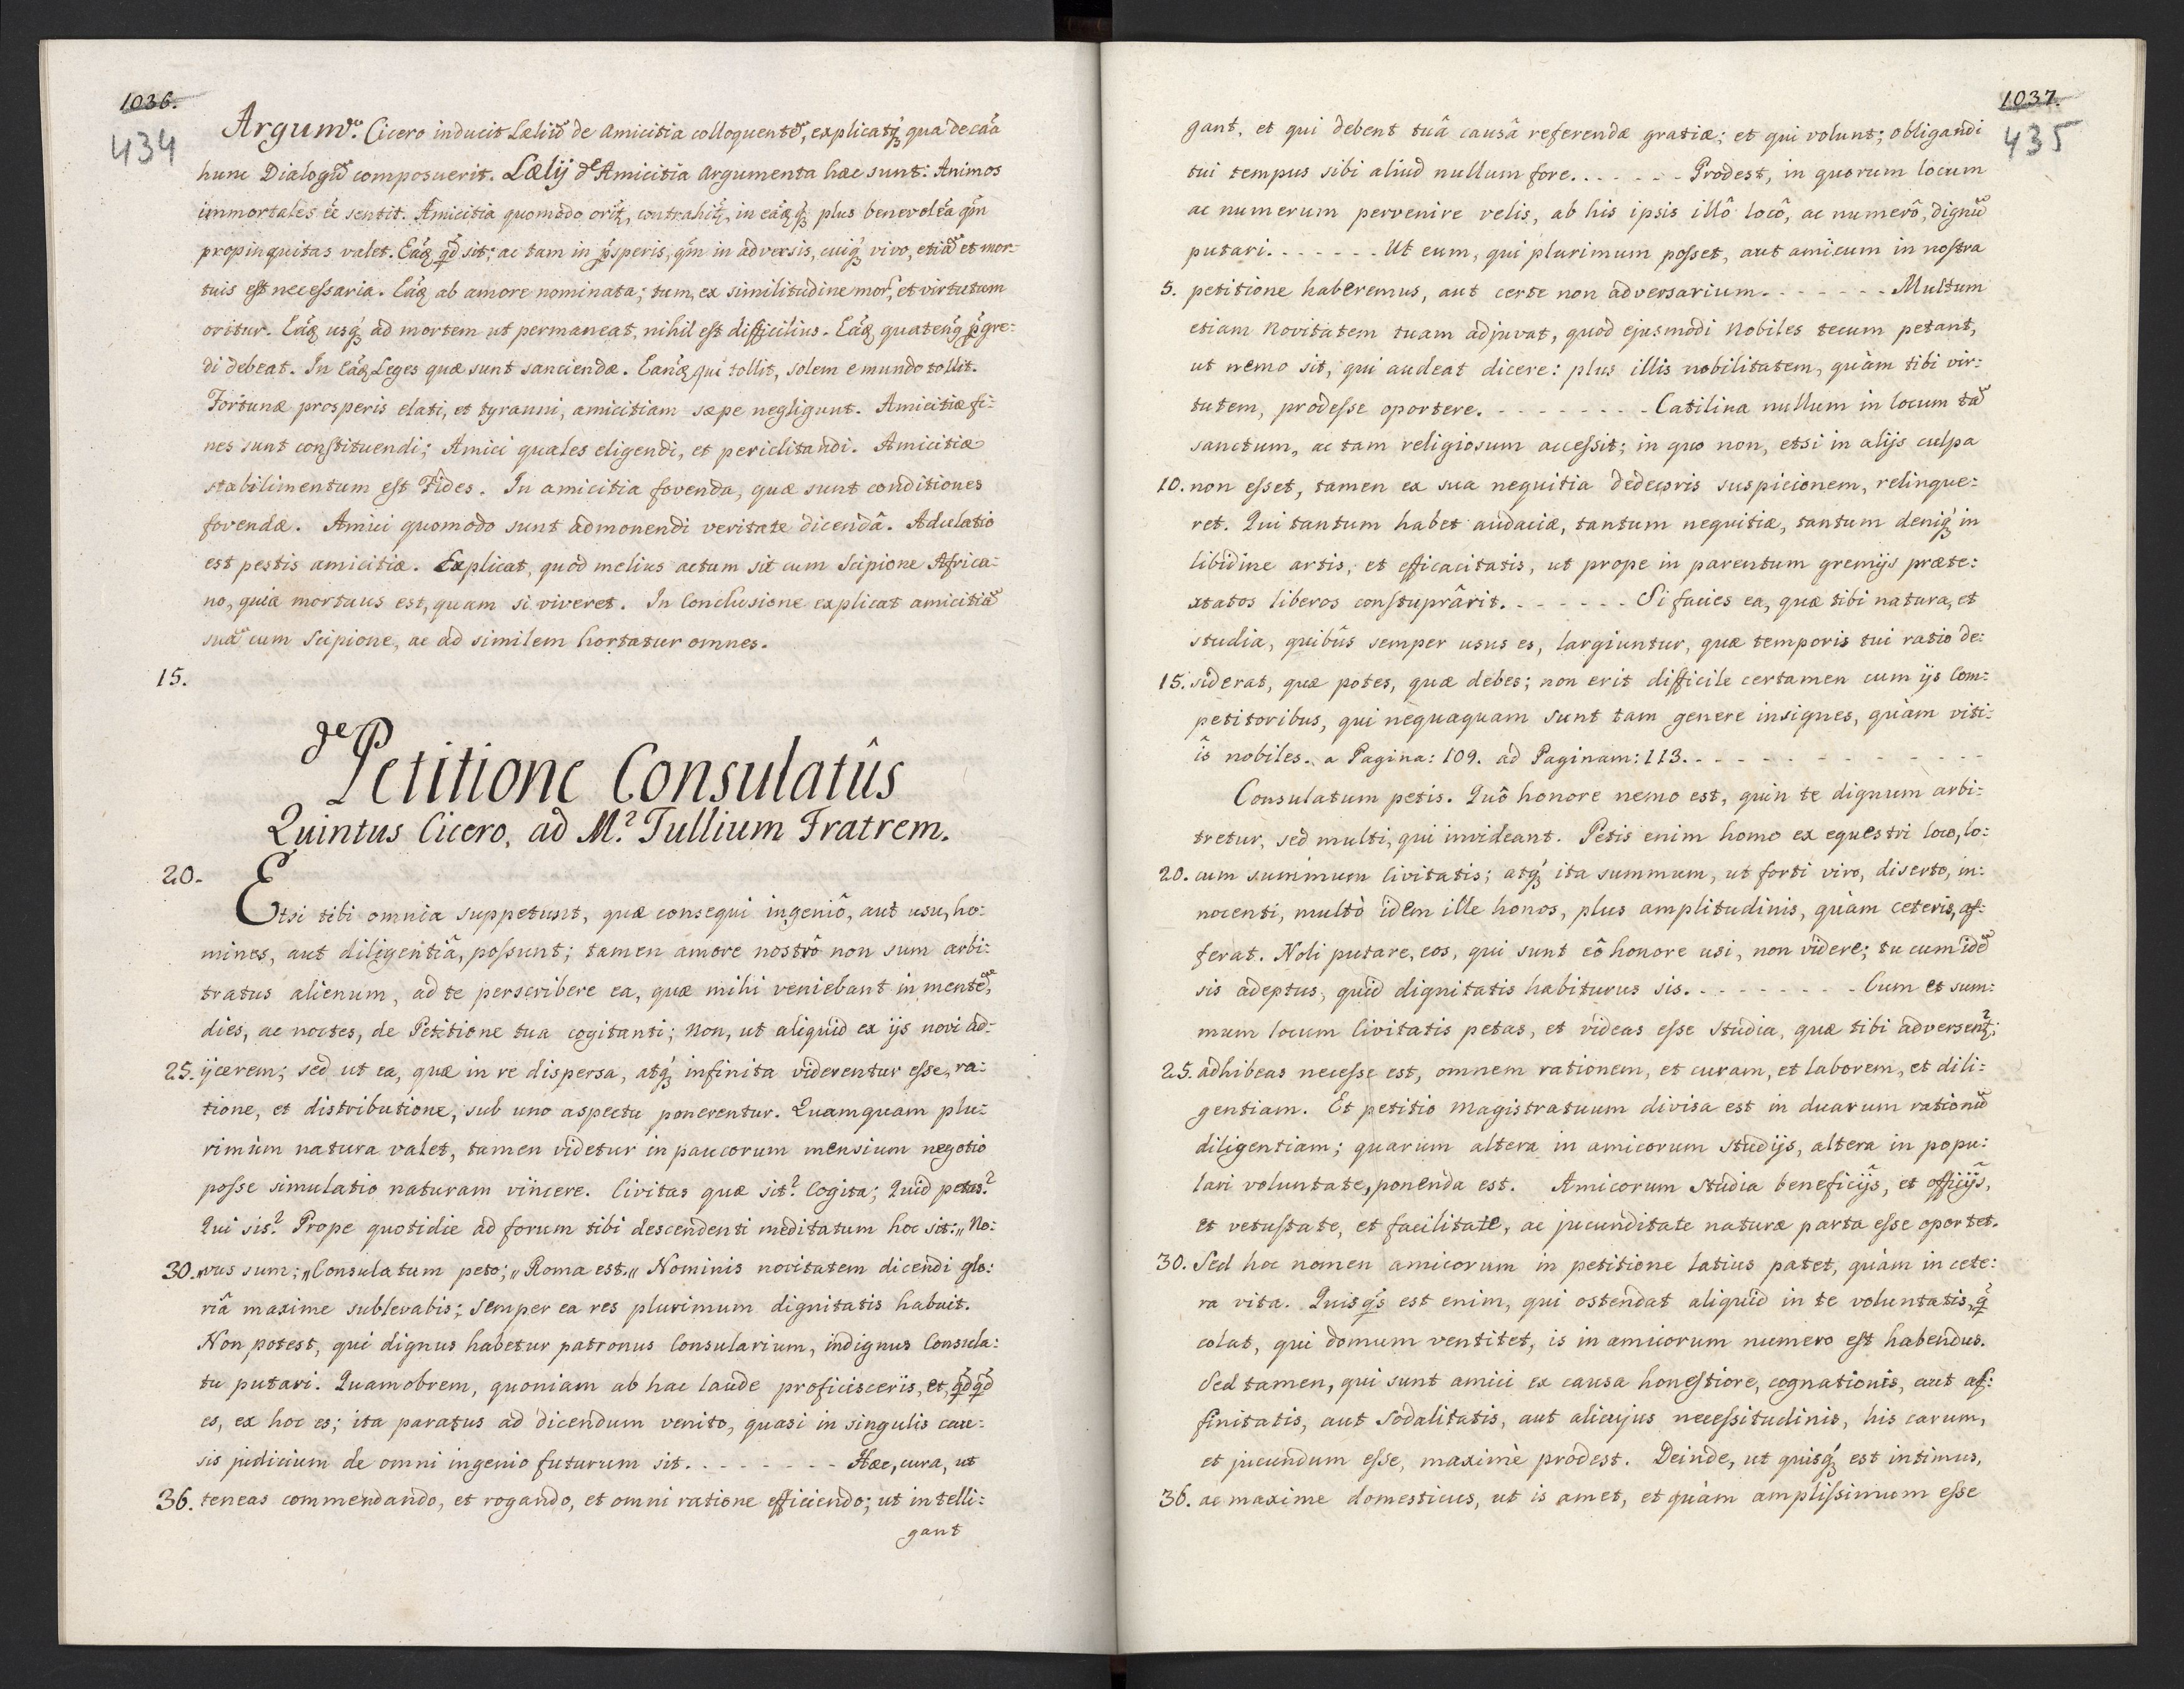 1036.
434
Argumto. Cicero inducit Læliũ de Amicitia colloquentẽ, explicatq́; qua de cãa
hunc Dialogũ composuerit. Lælij de Amicitia Argumenta hæc sunt: Animos
immortales ẽe sentit. Amicitia quomodo orit̃, contrahit̃, in eáq́; plus benevolẽa qm̃
propinquitas valet. Eáq́; qd̃ sit; ac tam in p̃speris, qm̃ in adversis, cuiq́; vivo, etiã et mor:
tuis est necessaria. Eáq́; ab amore nominata; tum, ex similitudine mor̃, et virtutum
oritur. Eáq́; usq́; ad mortem ut permaneat, nihil est difficilius. Eáq́; quatenq́; p̃gre:
di debeat. In Eáq́; Leges quæ sunt sanciendæ. Eanq́; qui tollit, solem e mundo tollit.
Fortunæ prosperis elati, et tyranni, amicitiam sæpe negligunt. Amicitiæ fi:
nes sunt constituendi; Amici quales eligendi, et periclitandi. Amicitiæ
stabilimentum est Fides. In amicitia fovenda, quæ sunt conditiones
fovendæ. Amici quomodo sunt admonendi veritate dicendâ. Adulatio
est pestis amicitiæ. Explicat, quòd melius actum sit cum Scipione Africa:
no, quia mortuus est, quam si viveret. In Conclusione explicat amicitiã
suã cum Scipione, ac ad similem hortatur omnes.
15.
de Petitione Consulatûs
Quintus Cicero, ad M? Tullium Fratrem.
20.
Etsi tibi omnia suppetunt, quæ consequi ingeniô, aut usu, ho:
mines, aut diligentiâ, possunt; tamen amore nostrô non sum arbi:
tratus alienum, ad te perscribere ea, quæ mihi veniebant in mentẽ,
dies, ac noctes, de Petitione tua cogitanti; Non, ut aliquid ex ijs novi ad:
25. ijcerem; sed ut ea, quæ in re dispersa, atq́; infinita viderentur esse, ra:
tione, et distributione, sub uno aspectu ponerentur. Quamquam plu:
rimùm natura valet, tamen videtur in paucorum mensium negotio
posse simulatio naturam vincere. Civitas quæ sit? Cogita; Quid petas?
Qui sis? Prope quotidie ad forum tibi descendenti meditatum hoc sit: „No:
30. „vus sum; „Consulatum peto; „Roma est.„ Nominis novitatem dicendi glo:
riâ maxime sublevabis; semper ea res plurimum dignitatis habuit.
Non potest, qui dignus habetur patronus Consularium, indignus Consula:
tu putari. Quamobrem, quoniam ab hac laude proficisceris, et, qd̃qd̃
es, ex hoc es; ita paratus ad dicendum venito, quasi in singulis cau:
sis judicium de omni ingenio futurum sit. . . . . . . . . Hæc, cura, ut
36. teneas commendando, et rogando, et omni ratione efficiendo; ut intelli:
gant
1037.
435
gant, et qui debent tuâ causâ referendæ gratiæ; et qui volunt; obligandi
tui tempus sibi aliud nullum fore. . . . . . . Prodest, in quorum locum
ac numerum pervenire velis, ab his ipsis illô locô, ac numerô, dignũ
putari. . . . . . . Ut eum, qui plurimum posset, aut amicum in nostra
5. petitione haberemus, aut certe non adversarium. . . . . . . . Multum
etiam Novitatem tuam adjuvat, quod ejusmodi Nobiles tecum petant,
ut nemo sit, qui audeat dicere: plus illis nobilitatem, quàm tibi vir:
tutem, prodesse oportere. . . . . . . . . Catilina nullum in locum tã
sanctum, ac tam religiosum accessit; in quo non, etsi in alijs culpa
10. non esset, tamen ex sua nequitia dedecoris suspicionem, relinque:
ret. Qui tantum habet audaciæ, tantum nequitiæ, tantum deniq́; in
libidine artis, et efficacitatis, ut prope in parentum gremijs præte:
xtatos liberos constuprârit. . . . . . . Si facies ea, quæ tibi natura, et
studia, quibûs semper usus es, largiuntur, quæ temporis tui ratio de:
15. siderat, quæ potes, quæ debes; non erit difficile certamen cum ijs Com:
petitoribus, qui nequaquam sunt tam genere insignes, quàm viti:
îs nobiles. a Pagina: 109. ad Paginam: 113. . . . . . . . . . . .
Consulatum petis. Quô honore nemo est, quin te dignum arbi:
tretur, sed multi, qui invideant. Petis enim homo ex equestri loco, lo:
20. cum summum Civitatis; atq́; ita summum, ut forti viro, diserto, in:
nocenti, multò idem ille honos, plus amplitudinis, quàm ceteris, af:
ferat. Noli putare, eos, qui sunt eô honore usi, non videre; tu cum idẽ
sis adeptus, quid dignitatis habiturus sis. . . . . . . . . Cum et sum:
mum locum Civitatis petas, et videas esse studia, quæ tibi adversent̃;
25. adhibeas necesse est, omnem rationem, et curam, et laborem, et dili:
gentiam. Et petitio Magistratuum divisa est in duarum rationũ
diligentiam; quarum altera in amicorum studijs, altera in popu:
lari voluntate, ponenda est. Amicorum studia beneficijs, et officijs,
et vetustate, et facilitate, ac jucunditate naturæ parta esse oportet.
30. Sed hoc nomen amicorum in petitione latius patet, quàm in cete:
ra vita. Quisq̃s est enim, qui ostendat aliquid in te voluntatis, q̃
colat, qui domum ventitet, is in amicorum numero est habendus.
Sed tamen, qui sunt amici ex causa honestiore, cognationis, aut af:
finitatis, aut Sodalitatis, aut alicujus necessitudinis, his carum,
et jucundum esse, maximè prodest. Deinde, ut quisq́; est intimus,
36. ac maxime domesticus, ut is amet, et quàm amplissimum esse